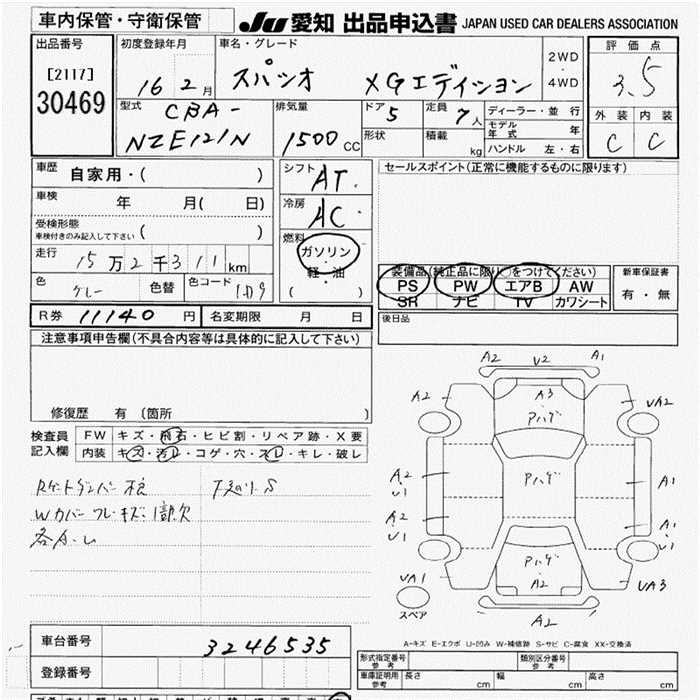 車内保管・守衛保管
JU 愛知 出品申込書 JAPAN USED CAR DEALERS ASSOCIATION
出品番号 [2117] 30469
初度登録年月 16 2月
車名・グレード スパシオ XGエディション
2WD ・ 4WD
評価点 3.5
外装 内装
C C
型式 CBA-
NZE121N
排気量 1500cc
ドア 5 定員 7人
形状 積載 kg
ディーラー・並行
モデル年式 年
ハンドル 左・右
車歴 自家用・( )
車検 年 月( 日)
受検形態
車検付きのみ記入して下さい ( )
走行 15万2千311km
色 グレー 色替 色コード 1D9
シフト AT.
冷房 AC.
燃料 ガソリン
・
軽・油
( )
セールスポイント(正常に機能するものに限ります)
装備品(純正品に限り○をつけてください)
PS PW エアB AW
SR ナビ TV カワシート
新車保証書
有・無
R券 11140円 名変期限 月 日
後日品
注意事項申告欄(不具合内容等は具体的に記入して下さい)
修復歴 有 〔箇所 〕
検査員記入欄
FW キズ・飛石・ヒビ割・リペア跡・X要
内装 キズ・汚レ・コゲ・穴・スレ・キレ・破レ
Rゲートダンパー不良
下廻りS
Wカバー
A2 V2 A1
A2 A3 UA2
Pハゲ
A2 Pハゲ A1
U1
A2 A2
U1 U1
UA1 Pハゲ UA3
A2
スペア A2
A-キズ E-エクボ U-凹み W-補修跡 S-サビ C-腐食 XX-交換済
車台番号 3246535
登録番号
形式指定番号 参考 類別区分番号 参考
車庫証明用 参考 長さ cm 幅 cm 高さ cm